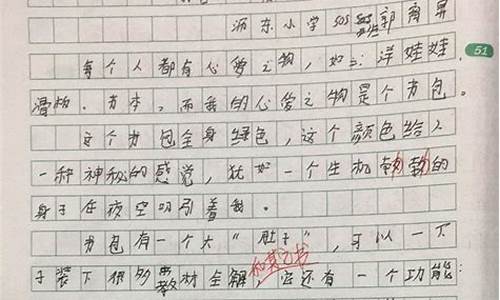 沥东小学505班郭育昇
51
每个人都有心爱之物，如：洋娃娃、
滑板、书本，而我的心爱之物是个书包。
这个书包全身绿色，这个颜色给人
一种神秘的感觉，犹如一个生机勃勃的
身子在夜空吸引着我。
书包有一个大“肚子”，可以一下
子装下很多教材全解和其它书它还有一个功能